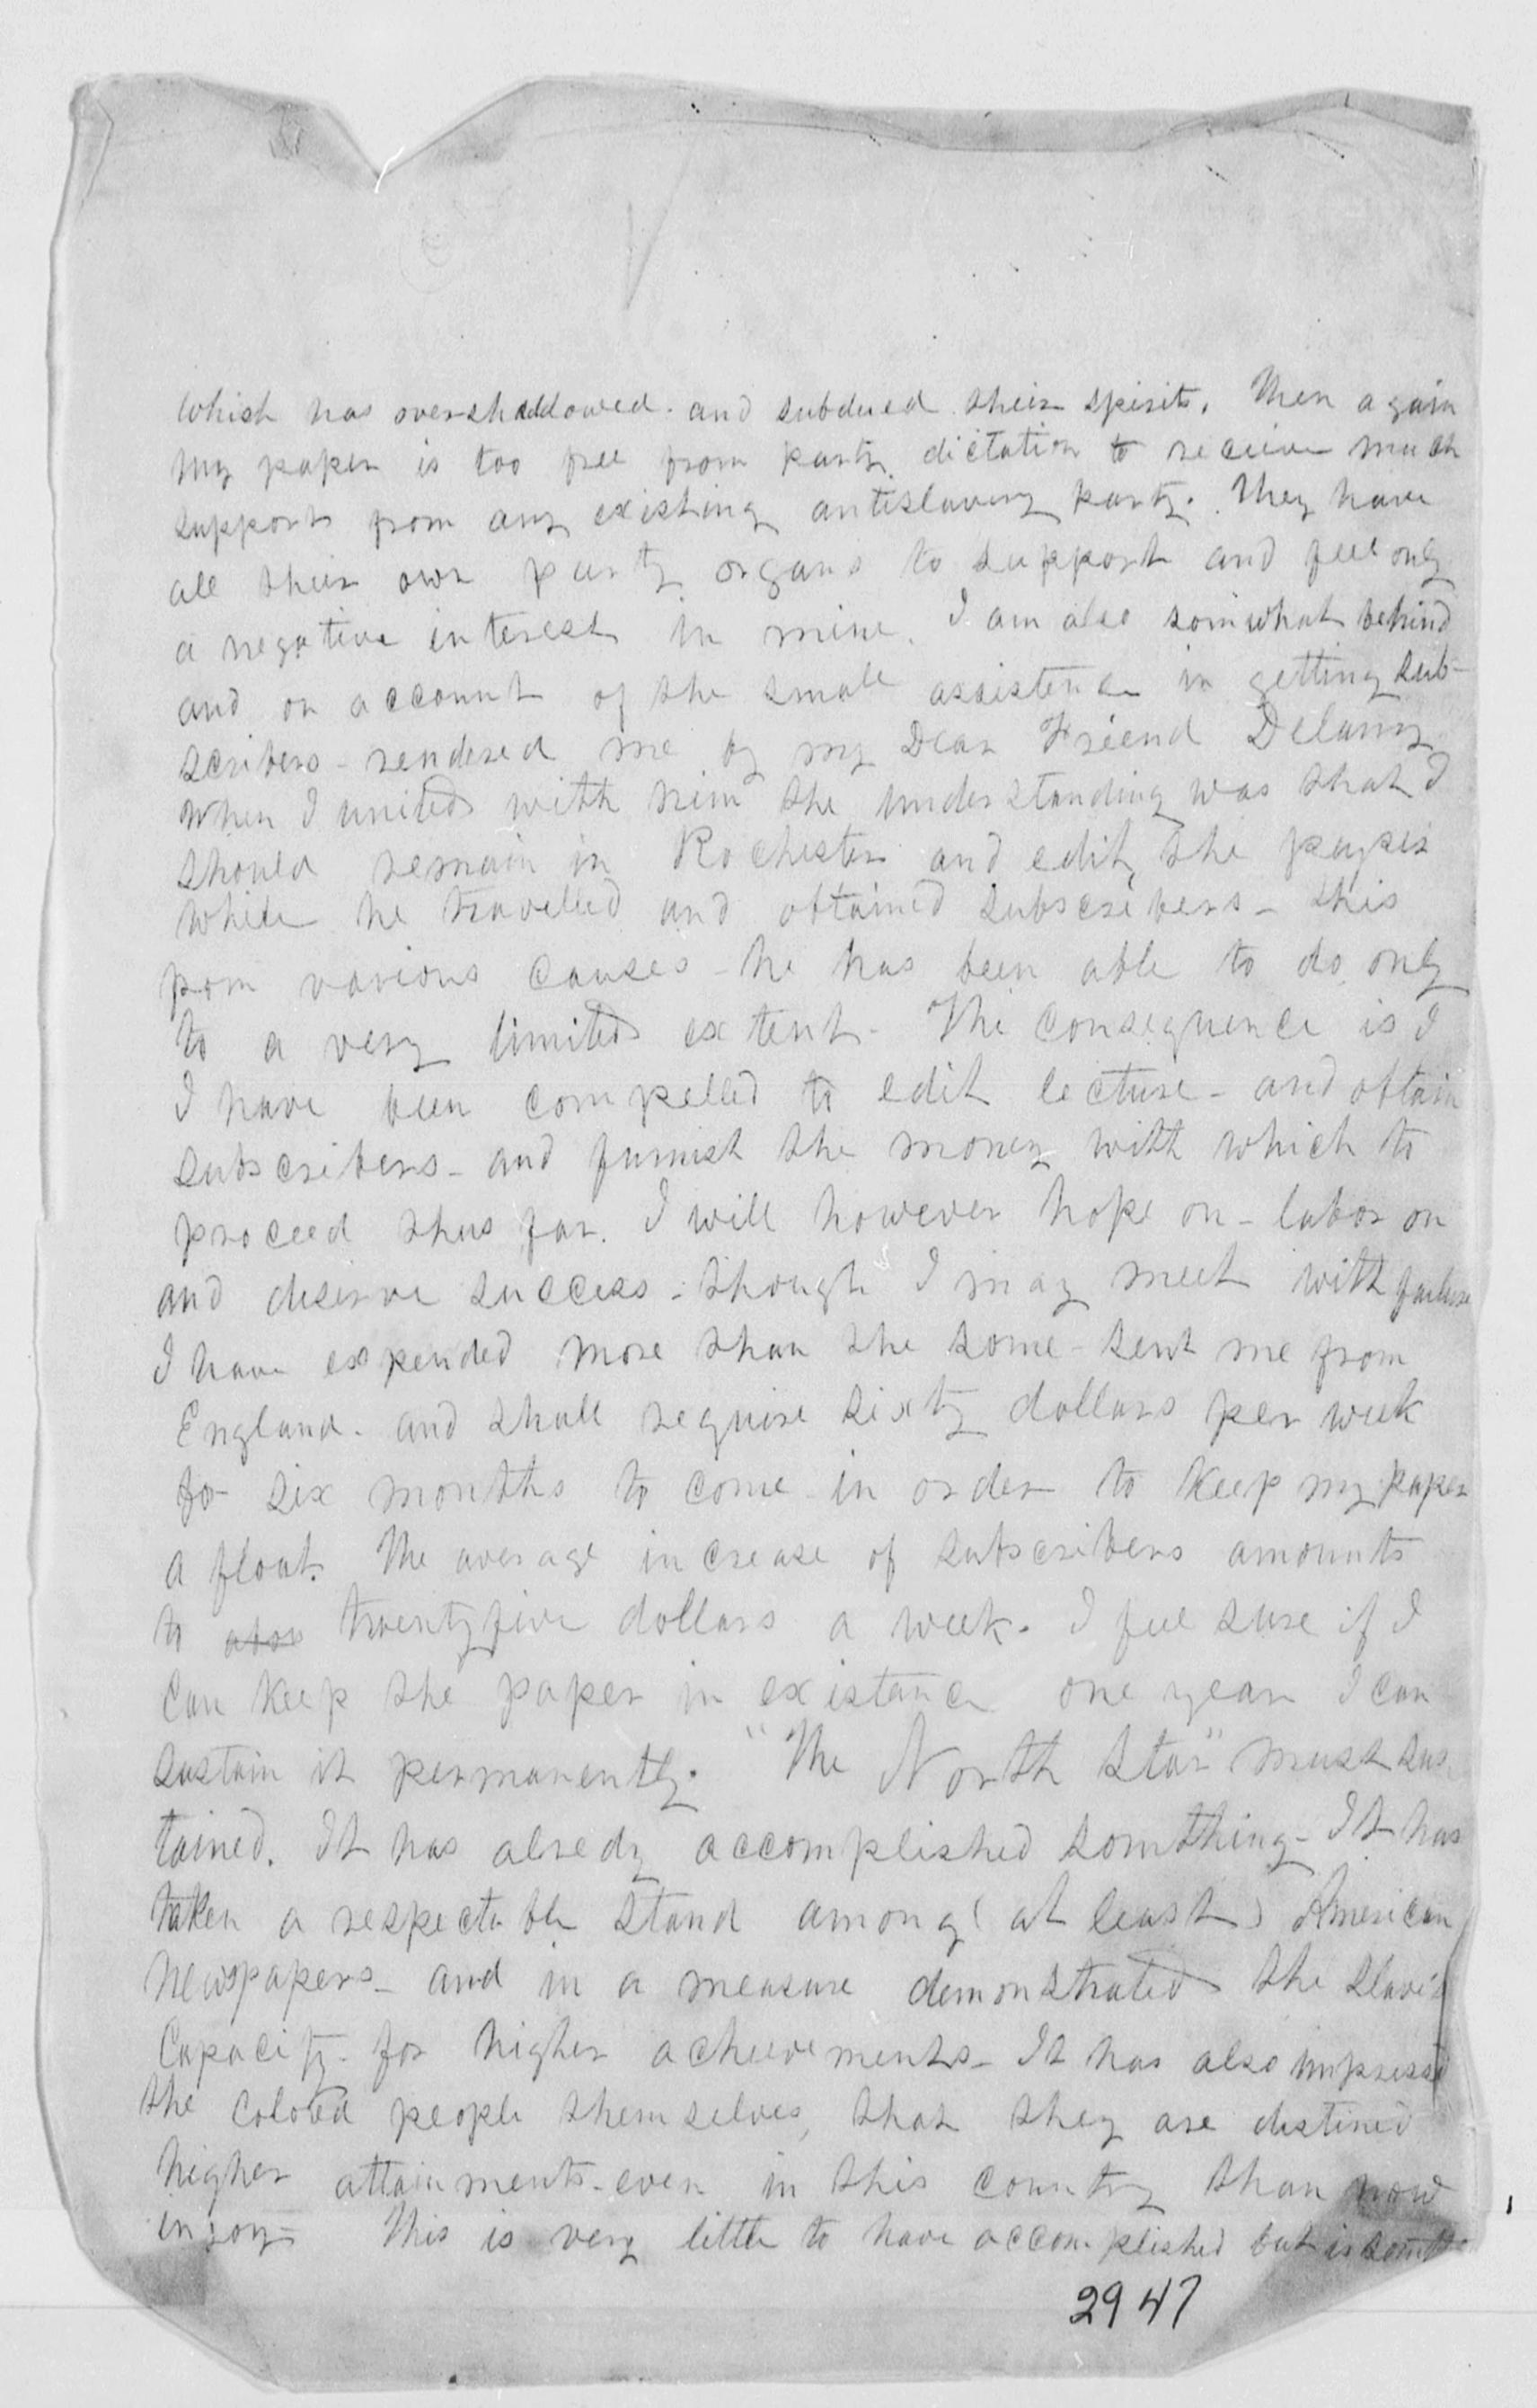 which has overshaddowed. and subdued their spirits. Then again
my paper is too free from party dictation to receive much
support from any existing antislavery party. They have
all their own party organs to support and feel only
a negative interest in mine. I am also somwhat behind
and on account of the small assistence in getting sub-
scribers - rendered me by my Dear Friend Delany
when I united with him the understanding was that I
should remain in Rochester and edit the paper
while he travelled and obtained subscribers - this
from various causes - he has been able to do only
to a very limited extent - The consequence is I
I have been compelled to edit lecture - and obtain
subscribers - and furnish the money with which to
proceed thus far. I will however hope on - labor on
and deserve success - though I may meet with failure
I have expended more than the some - sent me from
England. and shall require sixty dollars per week
for six months to come in order to keep my paper
a float. The average increase of subscribers amounts
to twenty five dollars a week. I feel sure if I
can keep the paper in existance one year I can
sustain it permanently. "The North Star" must sus
tained. It has alredy accomplished somthing - It has
taken a respectable stand among (at least) American
Newspapers - and in a measure demonstrated the slave's
Capacity - for higher acheivements - It has also impressed
the colored people themselves, that they are destined
higher attainments - even in this country than now
injoy - This is very little to have accomplished but is
2947